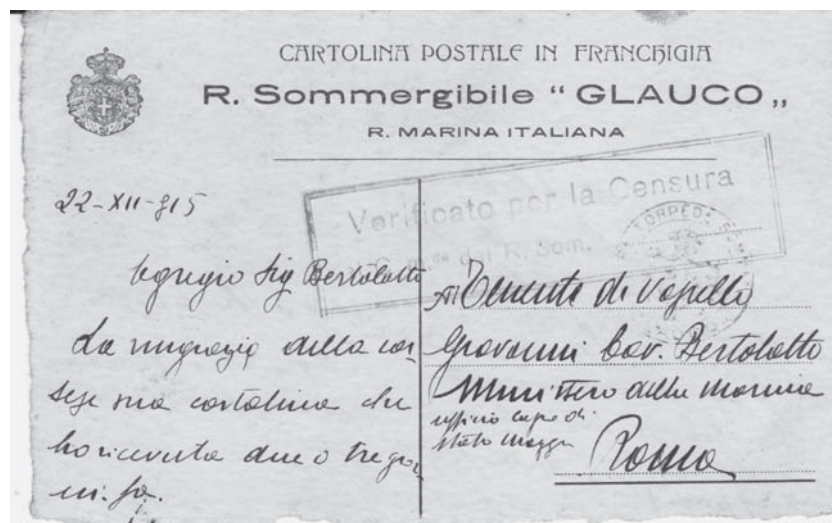 CARTOLINA POSTALE IN FRANCHIGIA
R. Sommergibile “ GLAUCO „
R. MARINA ITALIANA
Verificato per la Censura
dal R. Som.
TORPED
22-XII-915
Egregio Sig Bertolotti
La ringrazio della cor
tese sua cartolina che
ho ricevuta due o tre gior
ni. fa.
Al Tenente di Vascello
Giovanni Cav. Bertolotti
Ministero della Marina
ufficio capo di
Stato Maggr
Roma